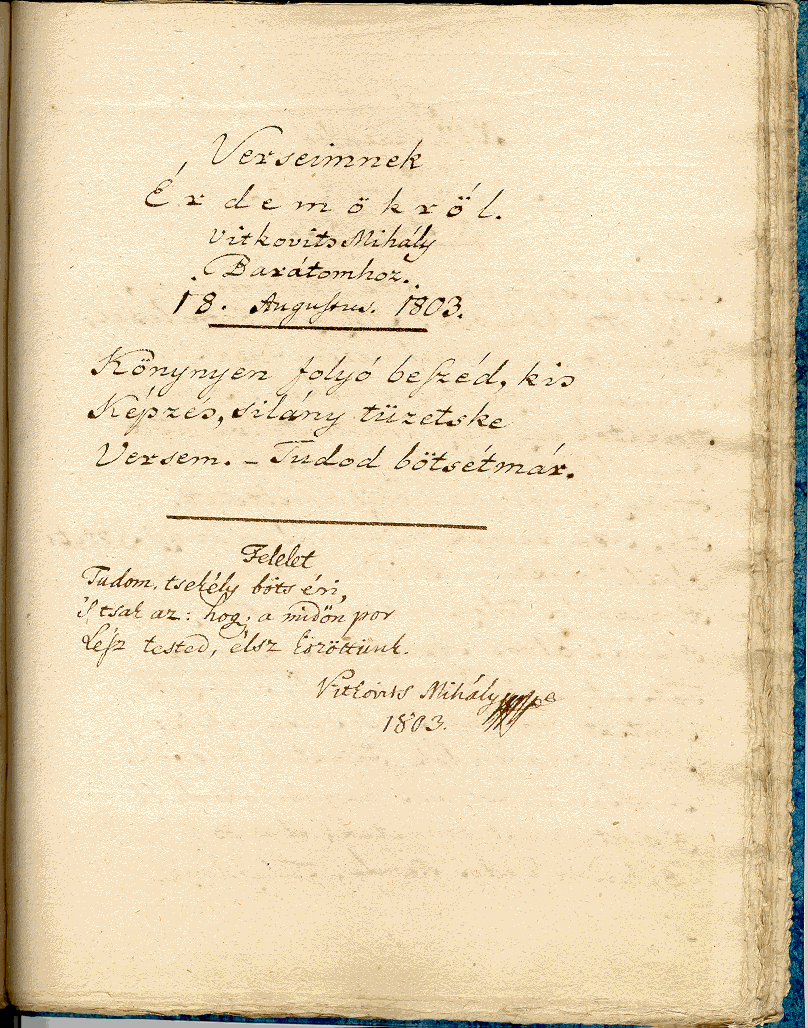 Verseimnek
Érdemökről.
Vitkovits Mihály
Barátomhoz.
18. Augustus. 1803.
Könynyen folyó beſzéd, kis
Képzés, silány tüzetske
Versem. – Tudod bötsétmár.
Felelet
Tudom. tsekély böts éri,
's tsak az: hogy a midön por
Léſz tested, élsz közöttünk.
Vitkovits Mihály
1803.